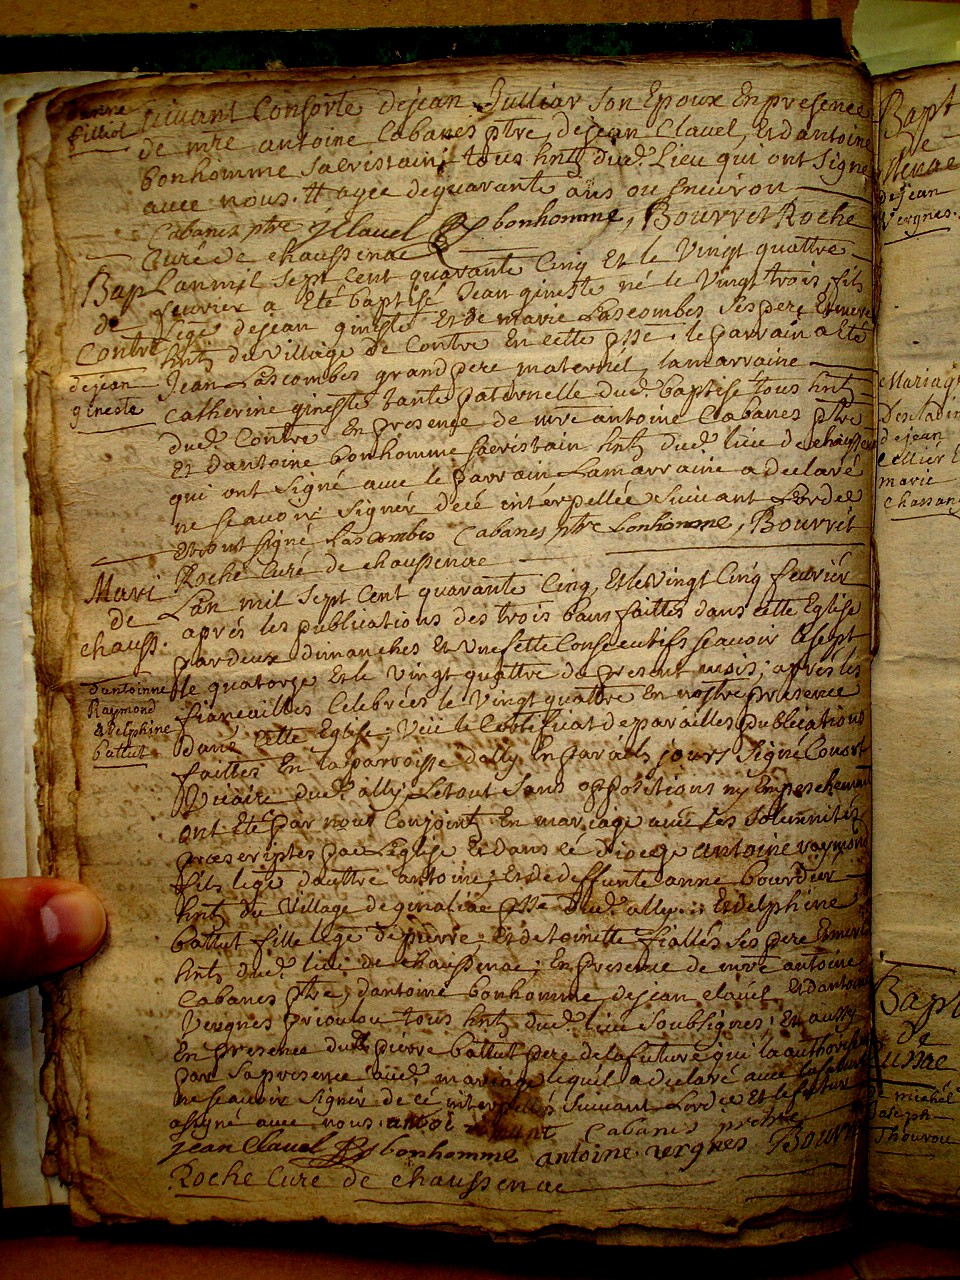 filliol
vivant Consorte dejean Julliar son Epoux En presence
de mre antoine Cabanes ptre, dejean Clavel, Et dantoine
bonhomme sacristain; tous hnts dud. Lieu qui ont signe
avec nous. tt agee dequarante ans ou Environ
Cabanes ptre J Clavel bonhomme, Bourret Roche
Curé de chaussenac
Bap Lanmil sept Cent quarante Cinq Et le Vingt quattre
de feuvrier a Eté baptisé Jean gineste né le Vingt trois, fils
lége dejean gineste Et de marie Lascombes ses pere Et mere
Contre hnts du Village de Contre En cette psse; le parrain a Eté
dejean Jean Lascombes grand pere maternel, lamarraine
gineste Catherine gineste tante paternelle dud. baptisé tous hnts
dud. Contre En presence de mre antoine Cabanes ptre
Et dantoine bonhomme sacristain hnts dud. lieu de chaussenac
qui ont signé avec le parrain Lamarraine a declaré
ne scavoir signer dece interpellée suivant Lordce
Et ont signé Lascombes Cabanes ptre bonhomme, Bourret
Roche Curé de chaussenac
Mari Lan mil sept Cent quarante Cinq, Et le Vingt Cinq feuvrier
de aprés les publications des trois bans faittes dans cette Eglise
chauss. par deux dimanches Et Une fette Consecutifs scavoir le sept
dantoinne le quatorze Et le Vingt quattre du present mois; aprés les
Raymond fiancailles Celebrées le Vingt quattre En nostre presence
& delphine dans cette Eglise; Veü le Certificat de parailles publications
battut faittes En la parroisse dally En parails jours signé Consort
Vicaire dud. ally, Letout sans oppositions ny Empeschement
ont Eté par nous Conjoints En mariage avec les solemnites
prescriptes par LEglise Et dans ce diocèze antoine raymond
fils lége dauttre antoine; Et de deffunte anne bourdier
hnts du Village de psse dud. ally; Et delphine
battut fille lége de pierre; Et de toinette fialles ses pere Et mere
hnts dud. lieu de chaussenac; En presence de mre antoine
Cabanes ptre, dantoine bonhomme, dejean clavel, Et dantoine
Vergnes prioulou tous hnts dud. lieu soubsignes; Et aussy
En presence dud. pierre battut pere de la future qui la authorisée
par sa presence aud. mariage lequil a declaré avec lafuture
ne scavoir signer de ce interpellés suivant Lordce Et le futur
a signé avec nous. Cabanes prêtre
jean Clavel bonhomme antoine vergnes Bourret
Roche Curé de chaussenac
Bapt
de
dejean
Vergnes.
Mariage
dejean
Cellier Et
marie
Chassan
Bapt
de
de michel
joseph